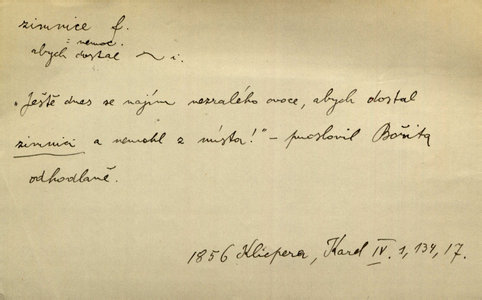 zimnice f.
= nemoc.
abych dostal ~ i.
„Ještě dnes se najím nezralého ovoce, abych dostal
zimnici a nemohl z místa!" – pronesl Bořita
odhodlaně.
1856 Klicpera, Karel IV. 1, 134, 17.